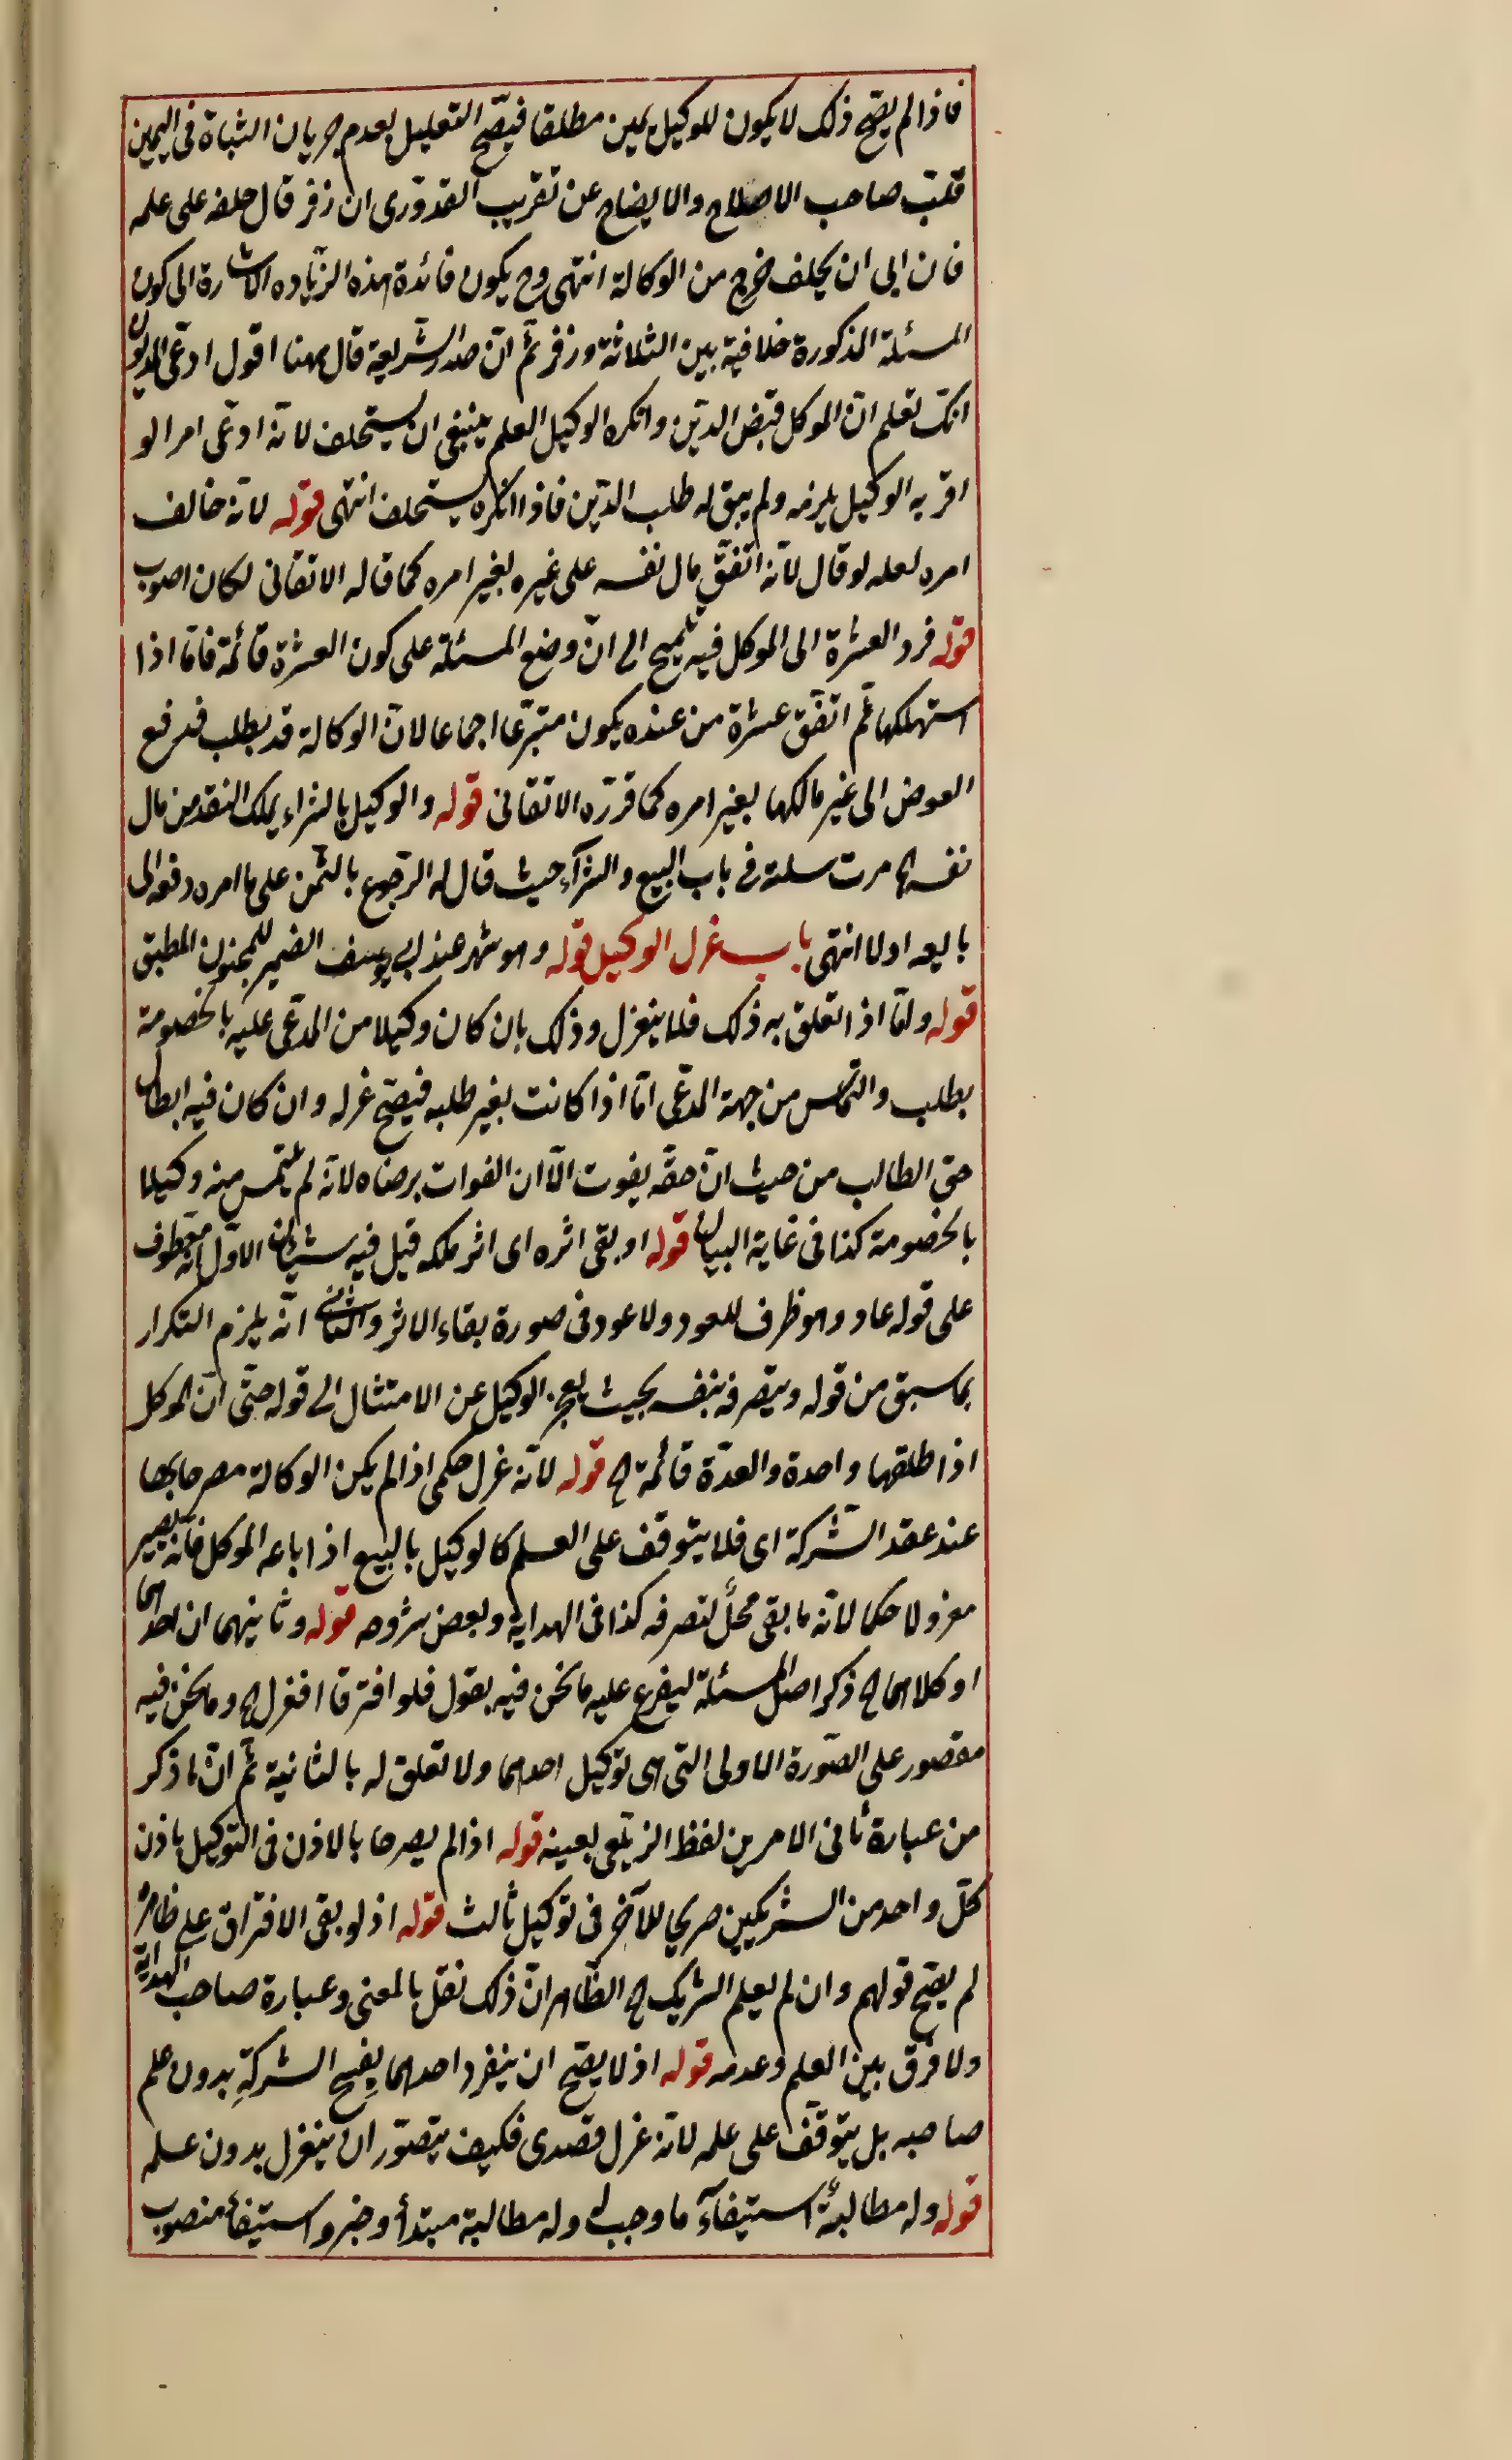 فاذا لم يصح ذلك لا يكون للوكيل يمين مطلقا فيصح التعليل بعدم جريان النيابة فى اليمين
قلت صاحب الاصلاح والايضاح عن تقريب القدورى ان زفر قال حلفه على علمه
فان ابى ان يحلف خرج من الوكالة انتهى وح يكون فائدة هذه الزياده الاشارة الى كون
المسئلة المذكورة خلافية بين الثلاثة وزفر ثم ان صدر الشريعة قال ههنا اقول ادعى المديون
انك تعلم ان الموكل قبض الدين وانكره الوكيل العلم ينبغى ان يستحلف لانه ادعى امرا لو
اقر به الوكيل يلزمه ولم يبق له طلب الدين فاذا انكره يستحلف انتهى قوله لانه خالف
امره لعله لو قال لانه انفق مال نفسه على غيره بغير امره كما قاله الاتقانى لكان اصوب
قوله فرد العشرة الى الموكل فيه تلميح الى ان وضع المسئلة على كون العشرة قائمة فاما اذا
استهلكها ثم انفق عشرة من عنده يكون متبرعا اجماعا لان الوكالة قد بطلب فدفع
العوض الى غير مالكها بغير امره كما قرره الاتقانى قوله والوكيل بالشراء يملك النقد من مال
نفسه الخ مرت مسئلته فى باب البيع والشرآء حيث قال له الرجوع بالثمن على ما امره دفعه الى
بايعه اولا انتهى باب عزل الوكيل قوله وهو شهر عند ابى يوسف الضمير للجنون المطبق
قوله واما اذا تعلق به ذلك فلا ينعزل وذلك بان كان وكيلا من المدعى عليه بالخصومة
بطلب والتماس من جهة المدعى اما اذا كانت بغير طلبه فيصح عزله وان كان فيه ابطال
حق الطالب من حيث ان حقه يفوت الا ان الفوات برضاه لانه لم يلتمس منه وكيلا
بالخصومة كذا فى غاية البيان قوله او بقى اثره اى اثر ملكه قيل فيه شيئان الاول انه معطوف
على قوله عاد وهو ظرف للعود ولا عود فى صورة بقاء الاثر والثانى انه يلزم التكرار
بما سبق من قوله وبتصرفه بنفسه بحيث يعجز الوكيل عن الامتثال الى قوله حتى ان الموكل
اذا طلقها واحدة والعدة قائمة الخ قوله لانه عزل حكمى اذا لم يكن الوكالة مصرحا بها
عند عقد الشركة اى فلا يتوقف على العلم كالوكيل بالبيع اذا باعه الموكل فانه يصير
معزولا حكما لانه ما بقى محل لتصرفه كذا فى الهداية وبعض شروحه قوله وثانيهما ان احدهما
او كلاهما الخ ذكر اصل المسئلة ليفرع عليه ما نحن فيه بقول فلو افترقا انعزل الخ وما نحن فيه
مقصور على الصورة الاولى التى هى توكيل احدهما ولا تعلق له بالثانية ثم ان ما ذكر
من عبارة ثانى الامرين لفظ الزيلعى بعينه قوله اذا لم يصرحا بالاذن فى التوكيل باذن
كل واحد من الشريكين صريحا للآخر فى توكيل ثالث قوله اذ لو بقى الافتراق على ظاهره
لم يصح قولهم وان لم يعلم الشريك الخ الظاهر ان ذلك نقل بالمعنى وعبارة صاحب الهداية
ولا فرق بين العلم وعدمه قوله اذ لا يصح ان ينفرد احدهما بفسخ الشركة بدون علم
صاحبه بل يتوقف على علمه لانه عزل قصدى فكيف يتصور ان ينعزل بدون علمه
قوله وله مطالبة استيفاء ما وجب له وله مطالبة مبتدأ وخبر واستيفاء منصوب